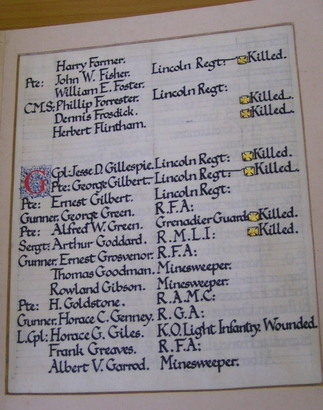 Harry Farmer.
Pte: John W. Fisher. Lincoln Regt: Killed.
William E. Foster.
C.M.S: Phillip Forrester. Lincoln Regt:
Dennis Frosdick. Killed.
Herbert Flintham. Killed.
G Cpl: Jesse D. Gillespie. Lincoln Regt: Killed.
Pte: George Gilbert. Lincoln Regt: Killed.
Pte: Ernest Gilbert. Lincoln Regt:
Gunner. George Green. R.F.A:
Pte: Alfred W. Green. Grenadier Guards Killed.
Sergt: Arthur Goddard. R.M.L.I: Killed.
Gunner. Ernest Grosvenor. R.F.A:
Thomas Goodman. Minesweeper.
Rowland Gibson. Minesweeper.
Pte: H. Goldstone. R.A.M.C:
Gunner. Horace C. Genney. R.G.A:
L.Cpl: Horace G. Giles. K.O. Light Infantry. Wounded.
Frank Greaves. R.F.A:
Albert V. Garrod. Minesweeper.